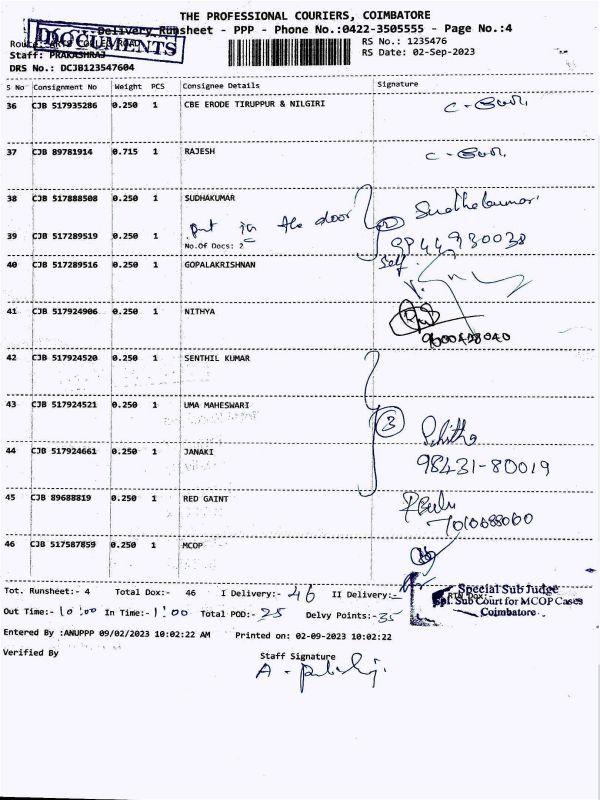 THE PROFESSIONAL COURIERS, COIMBATORE
Delivery Runsheet - PPP - Phone No.:0422-3505555 - Page No.:4
DOCUMENTS
Route: ARTS COLLEGE ROAD
RS No.: 1235476
Staff: PRAKASHRAJ
RS Date: 02-Sep-2023
DRS No.: DCJB123547604
S No Consignment No Weight PCS Consignee Details Signature
36 CJB 517935286 0.250 1 CBE ERODE TIRUPPUR & NILGIRI
37 CJB 89781914 0.715 1 RAJESH
38 CJB 517888508 0.250 1 SUDHAKUMAR Sudhakumar
put in the door
39 CJB 517289519 0.250 1 No.Of Docs: 2
40 CJB 517289516 0.250 1 GOPALAKRISHNAN Self
41 CJB 517924906 0.250 1 NITHYA
42 CJB 517924520 0.250 1 SENTHIL KUMAR
43 CJB 517924521 0.250 1 UMA MAHESWARI 3
44 CJB 517924661 0.250 1 JANAKI 98431-80019
45 CJB 89688819 0.250 1 RED GAINT
46 CJB 517587859 0.250 1 MCOP
Tot. Runsheet:- 4 Total Dox:- 46 I Delivery:- 46 II Delivery:- RTN Dox:-
Special Sub Judge
Spl. Sub Court for MCOP Cases
Coimbatore
Out Time:- 10:00 In Time:- 1:00 Total POD:- 25 Delvy Points:- 35
Entered By :ANUPPP 09/02/2023 10:02:22 AM Printed on: 02-09-2023 10:02:22
Verified By Staff Signature